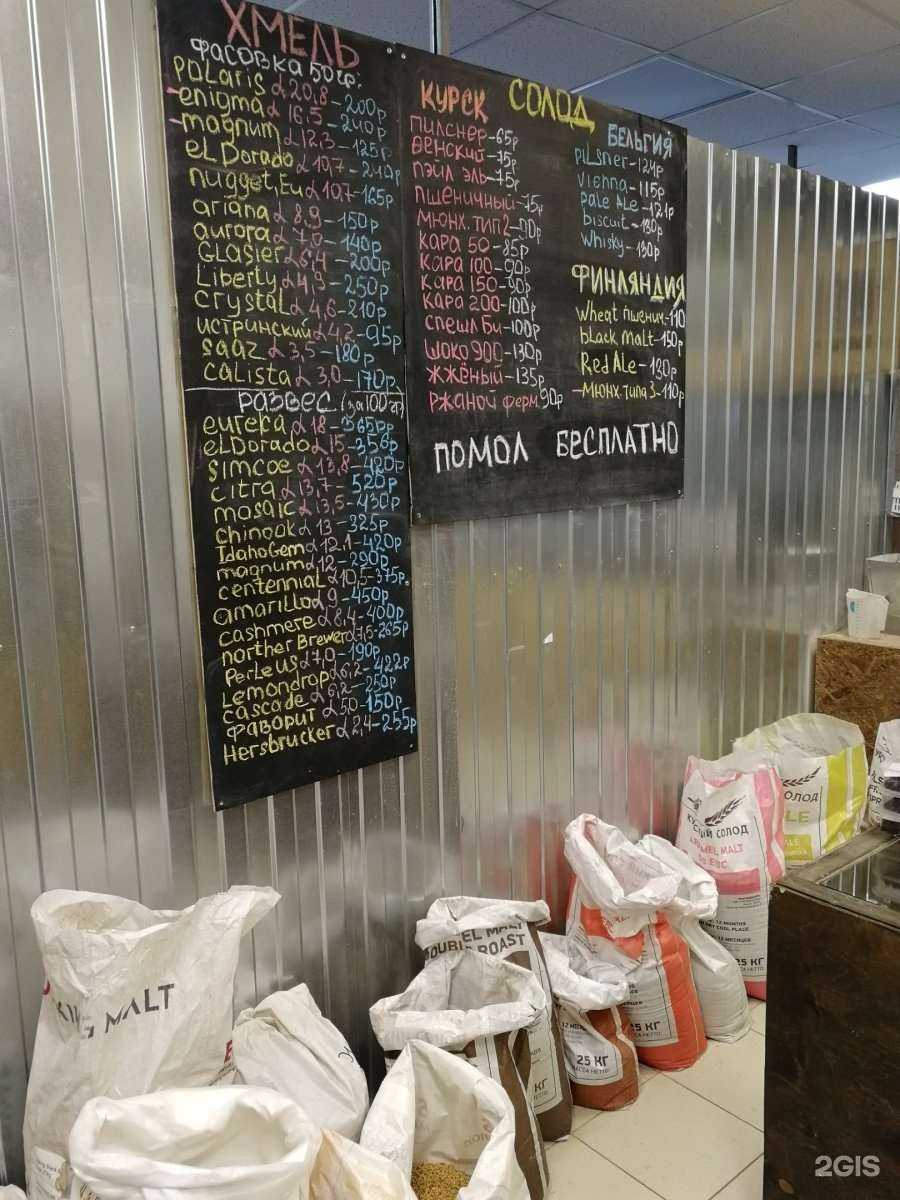 ХМЕЛЬ
ФАСОВКА 50 гр.
POLARIS α 20,8 - 200р
enigma α 16,5 - 240р
magnum α 12,3 - 125р
eLDorado α 10,7 - 240р
nugget, Eu α 10,7 - 165р
ariana α 8,9 - 150р
aurora α 7,0 - 140р
GLasier α 6,4 - 200р
Liberty α 4,9 - 250р
crystal α 4,6 - 210р
истринский α 4,2 - 95р
saaz α 3,5 - 180р
calista α 3,0 - 170р
РАЗВЕС (за 100 гр)
eureka α 18 - 365р
eLDorado α 15 - 356р
simcoe α 13,8 - 420р
citra α 13,7 - 520р
mosaic α 13,5 - 430р
chinook α 13 - 325р
IdahoGem α 12.1 - 420р
magnum α 12 - 290р
centennial α 10,5 - 375р.
amarillo α 9 - 450р
cashmere α 8,4 - 400р
norther Brewer α 7,5 - 265р
PerLe US α 7,0 - 190р
Lemondrop α 6,2 - 422р
cascade α 6,2 - 250р
ФАВОРИТ α 5,0 - 150р
Hersbrucker α 2,4 - 255р
СОЛОД
КУРСК
ПИЛСНЕР - 65р
ВЕНСКИЙ - 75р
ПЭЙЛ ЭЛЬ - 75р
ПШЕНИЧНЫЙ - 75р
МЮНХ. ТИП 2 - 90р
КАРА 50 - 85р
КАРА 100 - 90р
КАРА 150 - 90р
КАРА 200 - 100р
СПЕШЛ БИ - 100р
ШОКО 900 - 130р
ЖЖЁНЫЙ - 135р
РЖАНОЙ ФЕРМ 90р
БЕЛЬГИЯ
PILSner - 121р
Vienna - 115р
pale ALe - 121р
biscuit - 130р
Whisky - 130р
ФИНЛЯНДИЯ
Wheat пшенич. - 110
bLack maLt - 150р
Red ALe - 130р
МЮНХ. типа 3 - 110р
ПОМОЛ БЕСПЛАТНО
MALT
MALT
DOUBLE ROAST
КГ
25 КГ
МАССА НЕТТО
25 КГ
МАССА НЕТТО
СОЛОД
MALT
EBC
12 MONTHS
12 МЕСЯЦЕВ
25 КГ
НЕТТО
2GIS